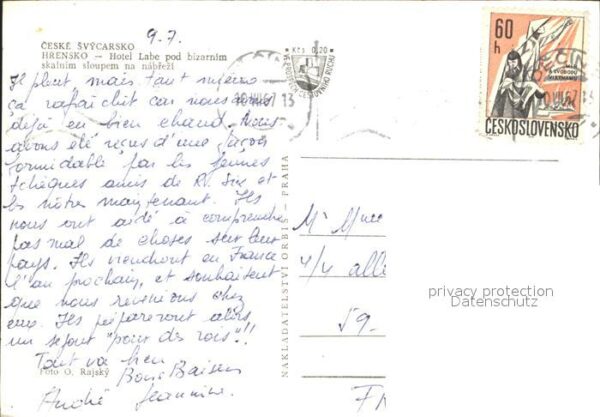 9.7.
ČESKÉ ŠVÝCARSKO
HŘENSKO — Hotel Labe pod bizarním
skalním sloupem na nábřeží
Il pleut mais tant mieux
ça rafraichit car nous avons
déjà eu bien chaud. Nous
avons été reçus d'une façon
formidable par les jeunes
tchèques amis de et
les nôtres maintenant. Ils
nous ont aidé à comprendre
pas mal de choses sur leur
pays. Ils viendront en France
l'an prochain, et souhaitent
que nous revenions chez
eux. Ils prépareront alors
un séjour "pour des rois"!!
Tout va bien
Foto O. Rajský
Bons Baisers
André Jeannine.
NAKLADATELSTVÍ ORBIS — PRAHA
Kčs 0,20
13
60
h
ZA SVOBODU
ČESKOSLOVENSKO
Mr Mme
4/4 allée
59
privacy protection
Datenschutz